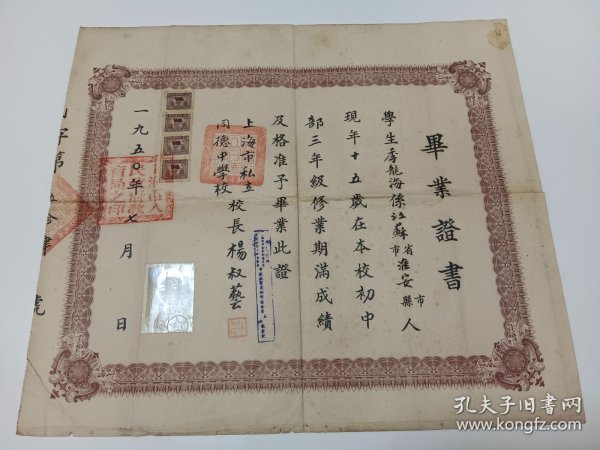 畢業證書
學生李龍海係江蘇省市淮安縣市人
現年十五歲在本校初中
部三年級修業期滿成績
及格准予畢業此證
上海市私立
同德中學校
校長楊叔藝
一九五〇年七月 日
字第
號
孔夫子旧书网
www.kongfz.com